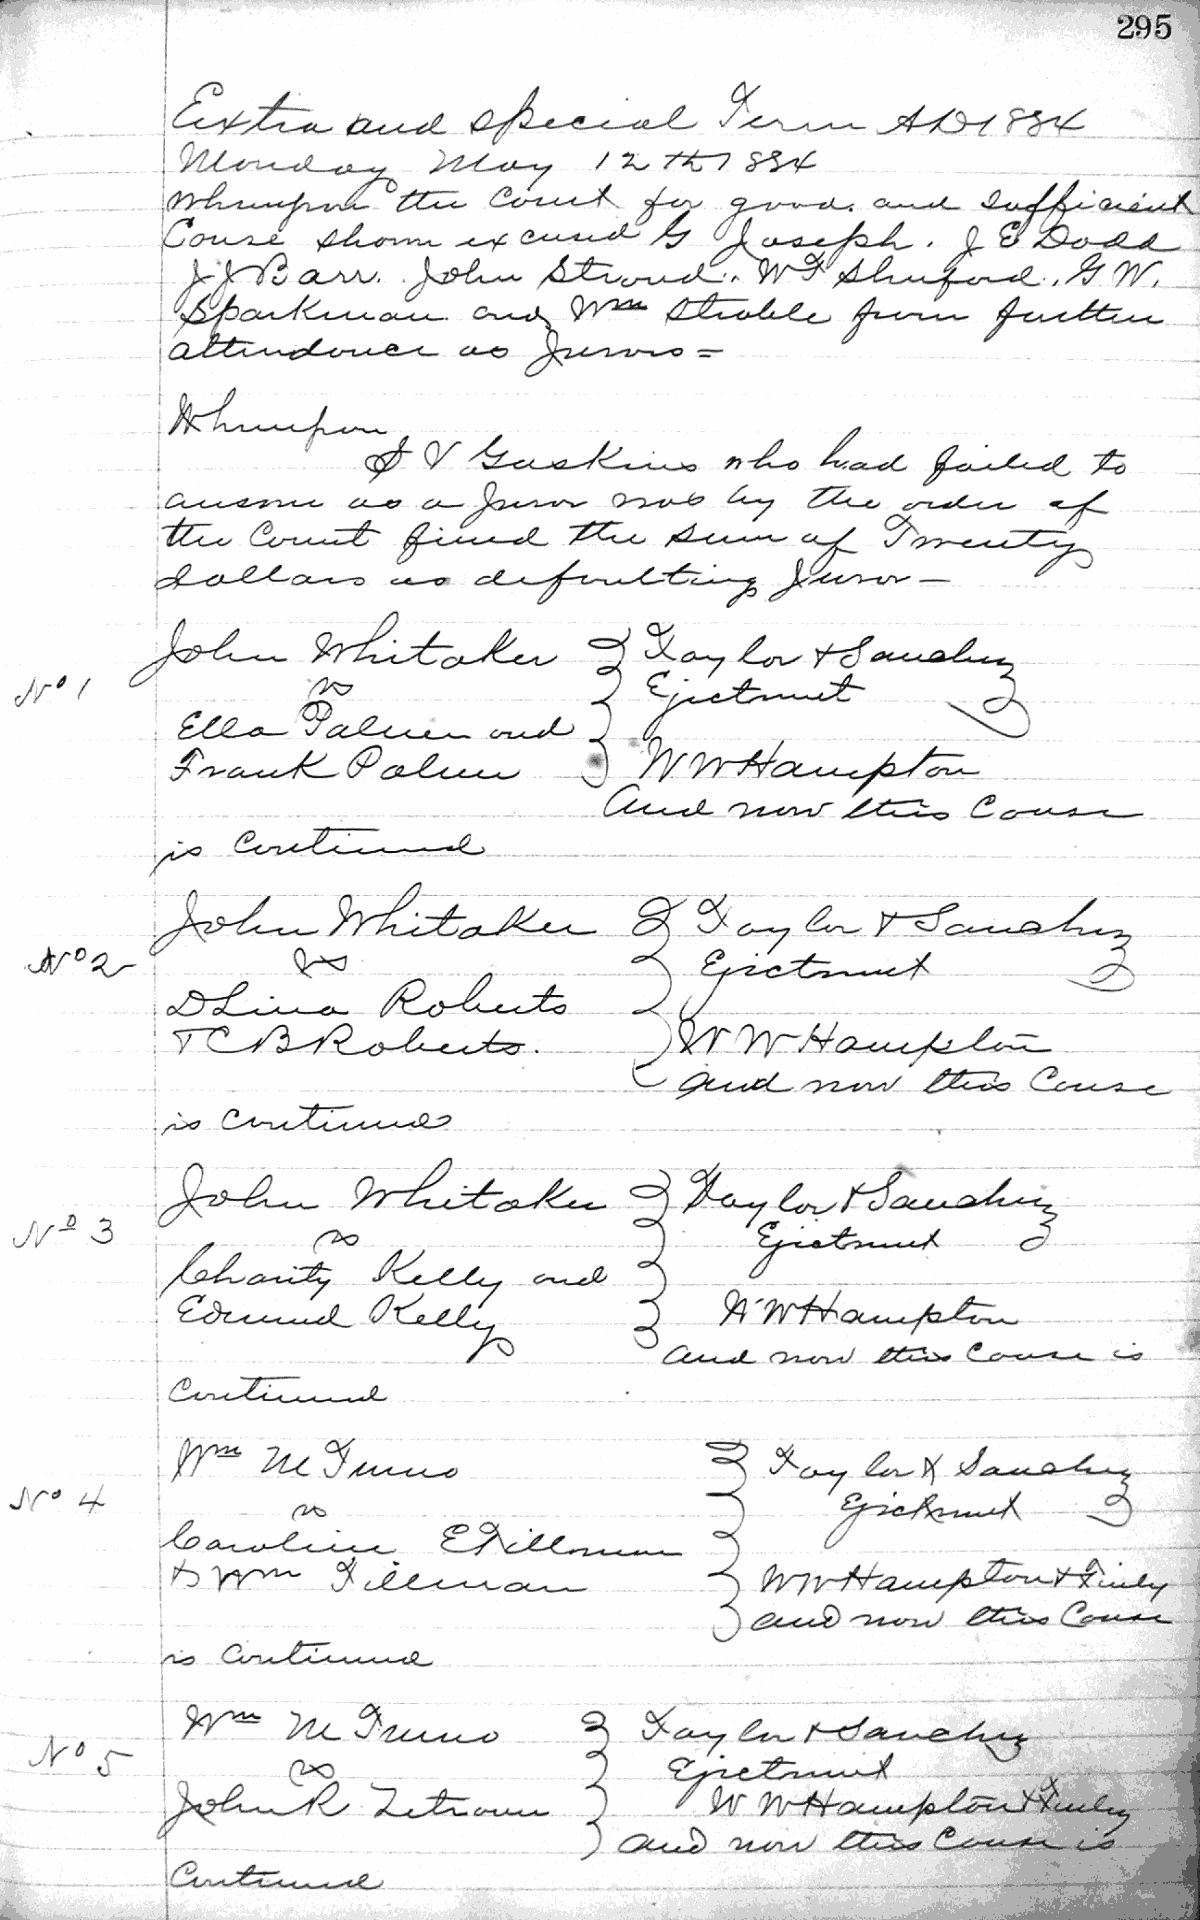 295
Extra and Special Term AD 1884
Monday May 12th 1884
Whereupon the Court for good and sufficient
Cause shown excused G Joseph. J E Dodd
J J Barr. John Stroud. W F Shuford. G W.
Sparkman and Wm Strable from further
attendance as Jurors =
Whereupon
S V Gaskins who had failed to
answer as a Juror was by the order of
the Court fined the sum of Twenty
dollars as defaulting Juror —
John Whitaker Taylor & Sanchez
No 1 vs Ejectment
Ella Palmer and
Frank Palmer W W Hampton
And now this Cause
is Continued
John Whitaker Taylor & Sanchez
No 2 vs Ejectment
D Roberts
T C B Roberts. W W Hampton
and now this Cause
is Continued
John Whitaker Taylor & Sanchez
No 3 vs Ejectment
Charity Kelly and
Edmund Kelly W W Hampton
and now this Cause is
Continued
Wm M Taylor & Sanchez
No 4 vs Ejectment
Caroline E Tillman
& Wm Tillman W W Hampton & Finley
and now this Cause
is Continued
Wm M Taylor & Sanchez
No 5 vs Ejectment
John R Zetrouer W W Hampton & Finley
and now this Cause is
Continued